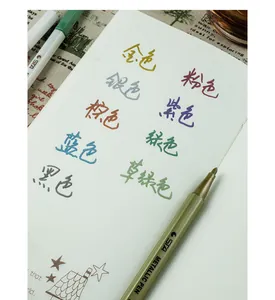 金色
粉色
银色
紫色
棕色
绿色
蓝色
草绿色
黑色
STA
METALLIC PEN